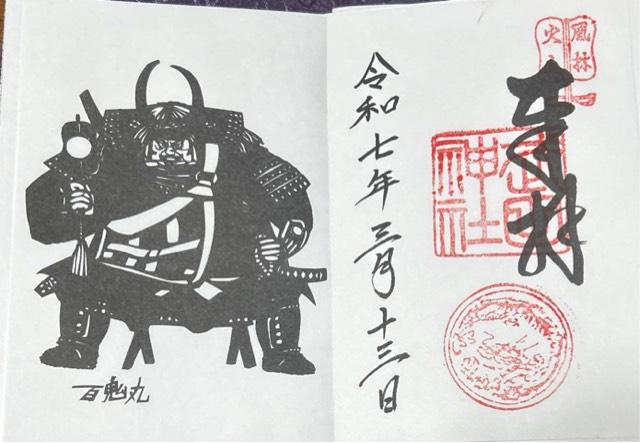 風林
火山
奉拝
武田
神社
令和七年三月十三日
百鬼丸